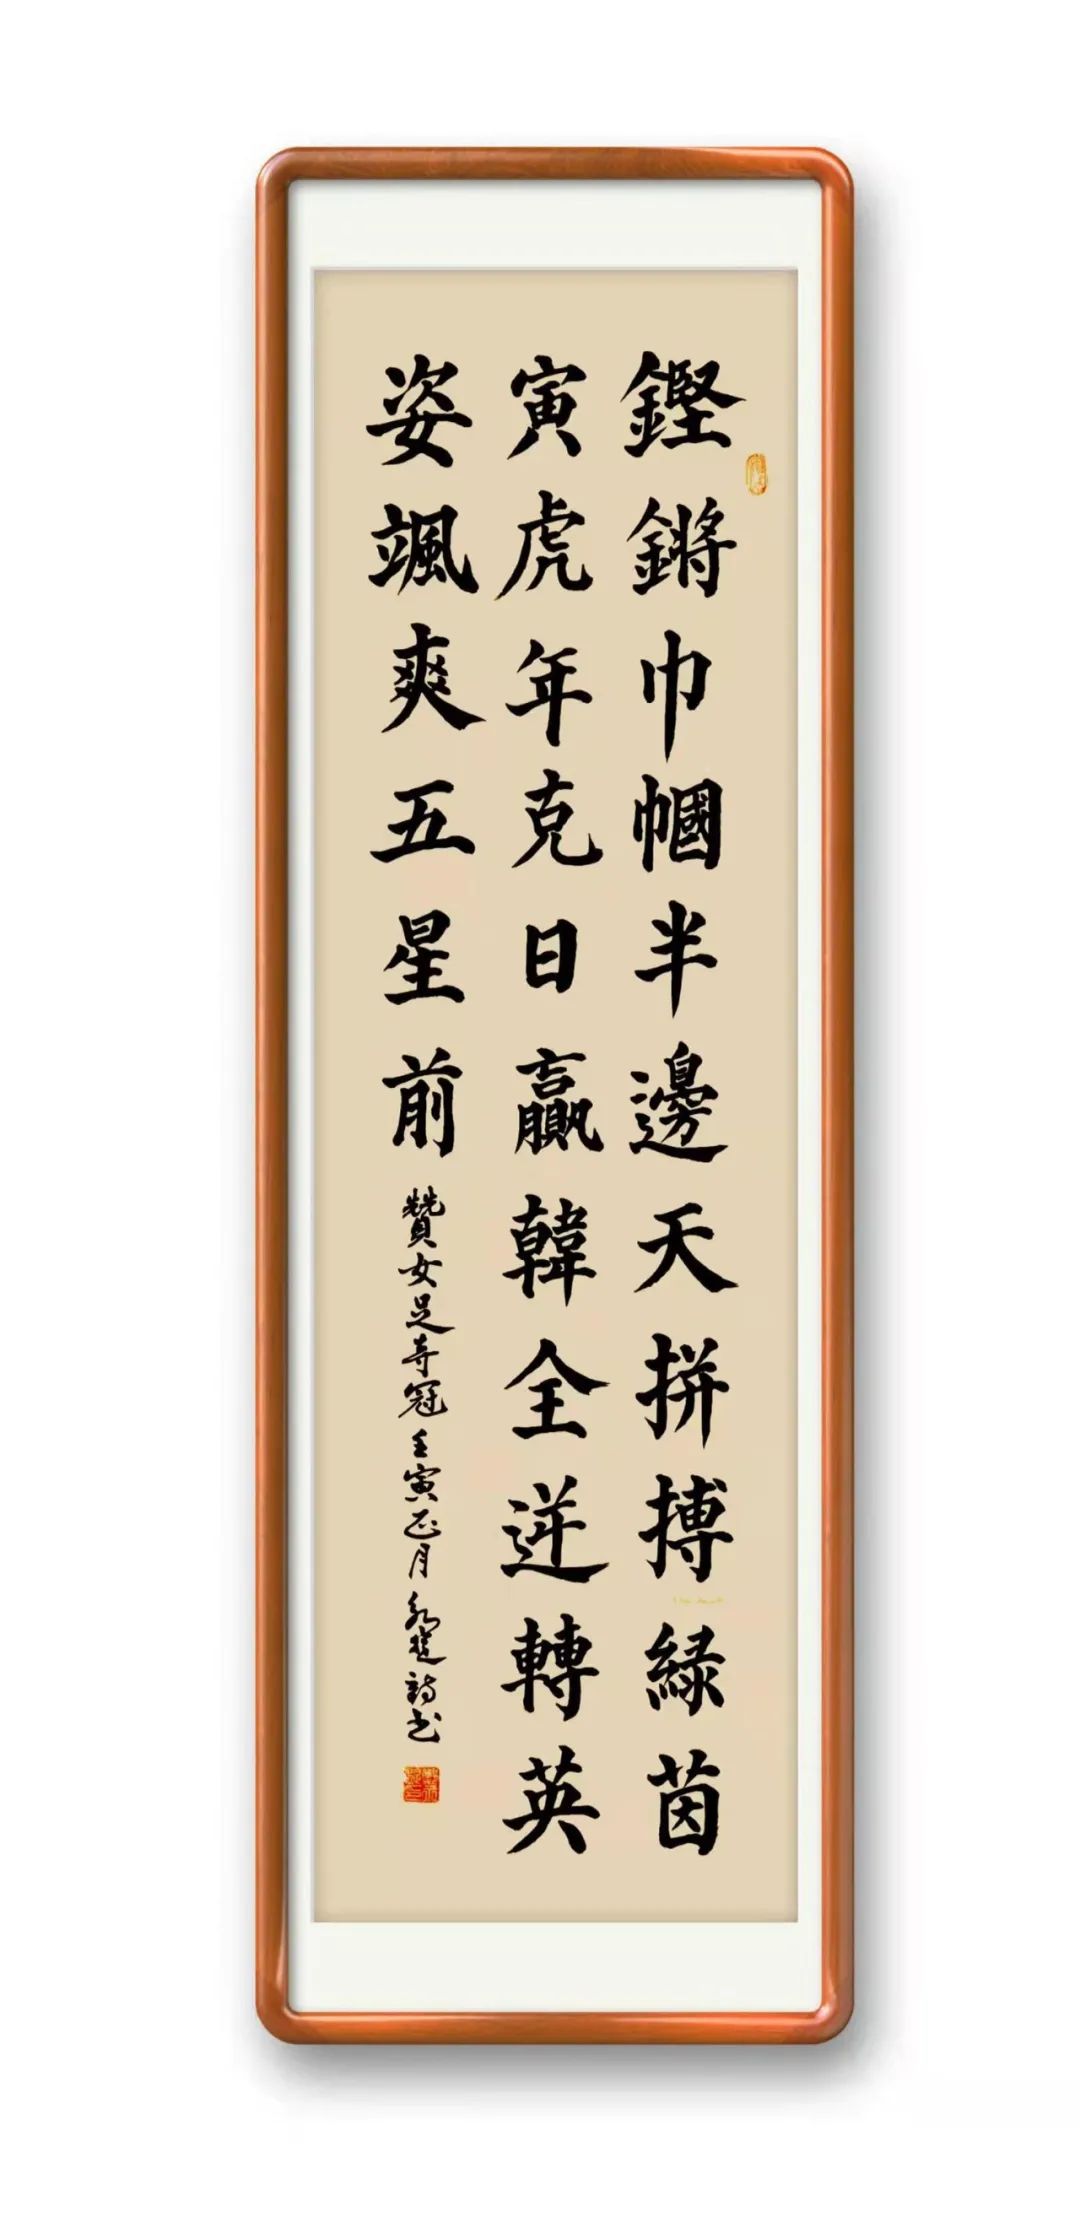 鏗鏘巾幗半邊天拼搏緑茵
寅虎年克日贏韓全逆轉英
姿颯爽五星前
贊女足夺冠壬寅正月詩书